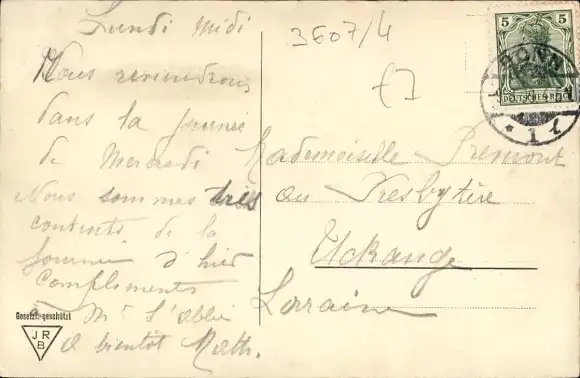 Lundi midi
Nous reviendrons
dans la journée
de Mercredi
Nous sommes très
contents de la
journée d'hier
Compliments
à Mr l'abbé
A bientôt Math.
3607/4
5
DEUTSCHES REICH
BONN
* 1 l
Mademoiselle Premont
au Presbytère
Uckange
Lorraine
Gesetzl. geschützt
JRB